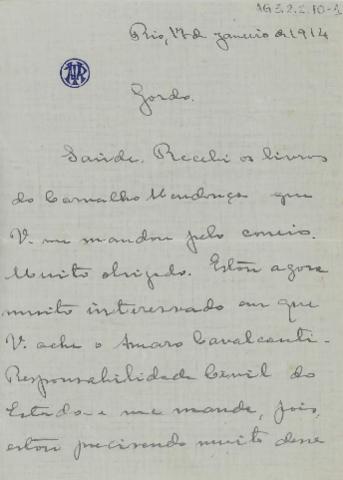 AG 3.2.2.10-1
Rio, 17 de janeiro de 1914
Gordo.
Saúde. Recebi os livros
do Carvalho Mendonça que
V. me mandou pelo correio.
Muito obrigado. Estou agora
muito interessado em que
V. ache o Amaro Cavalcanti -
Responsabilidade Civil do
Estado - e me mande, pois,
estou precisando muito desse